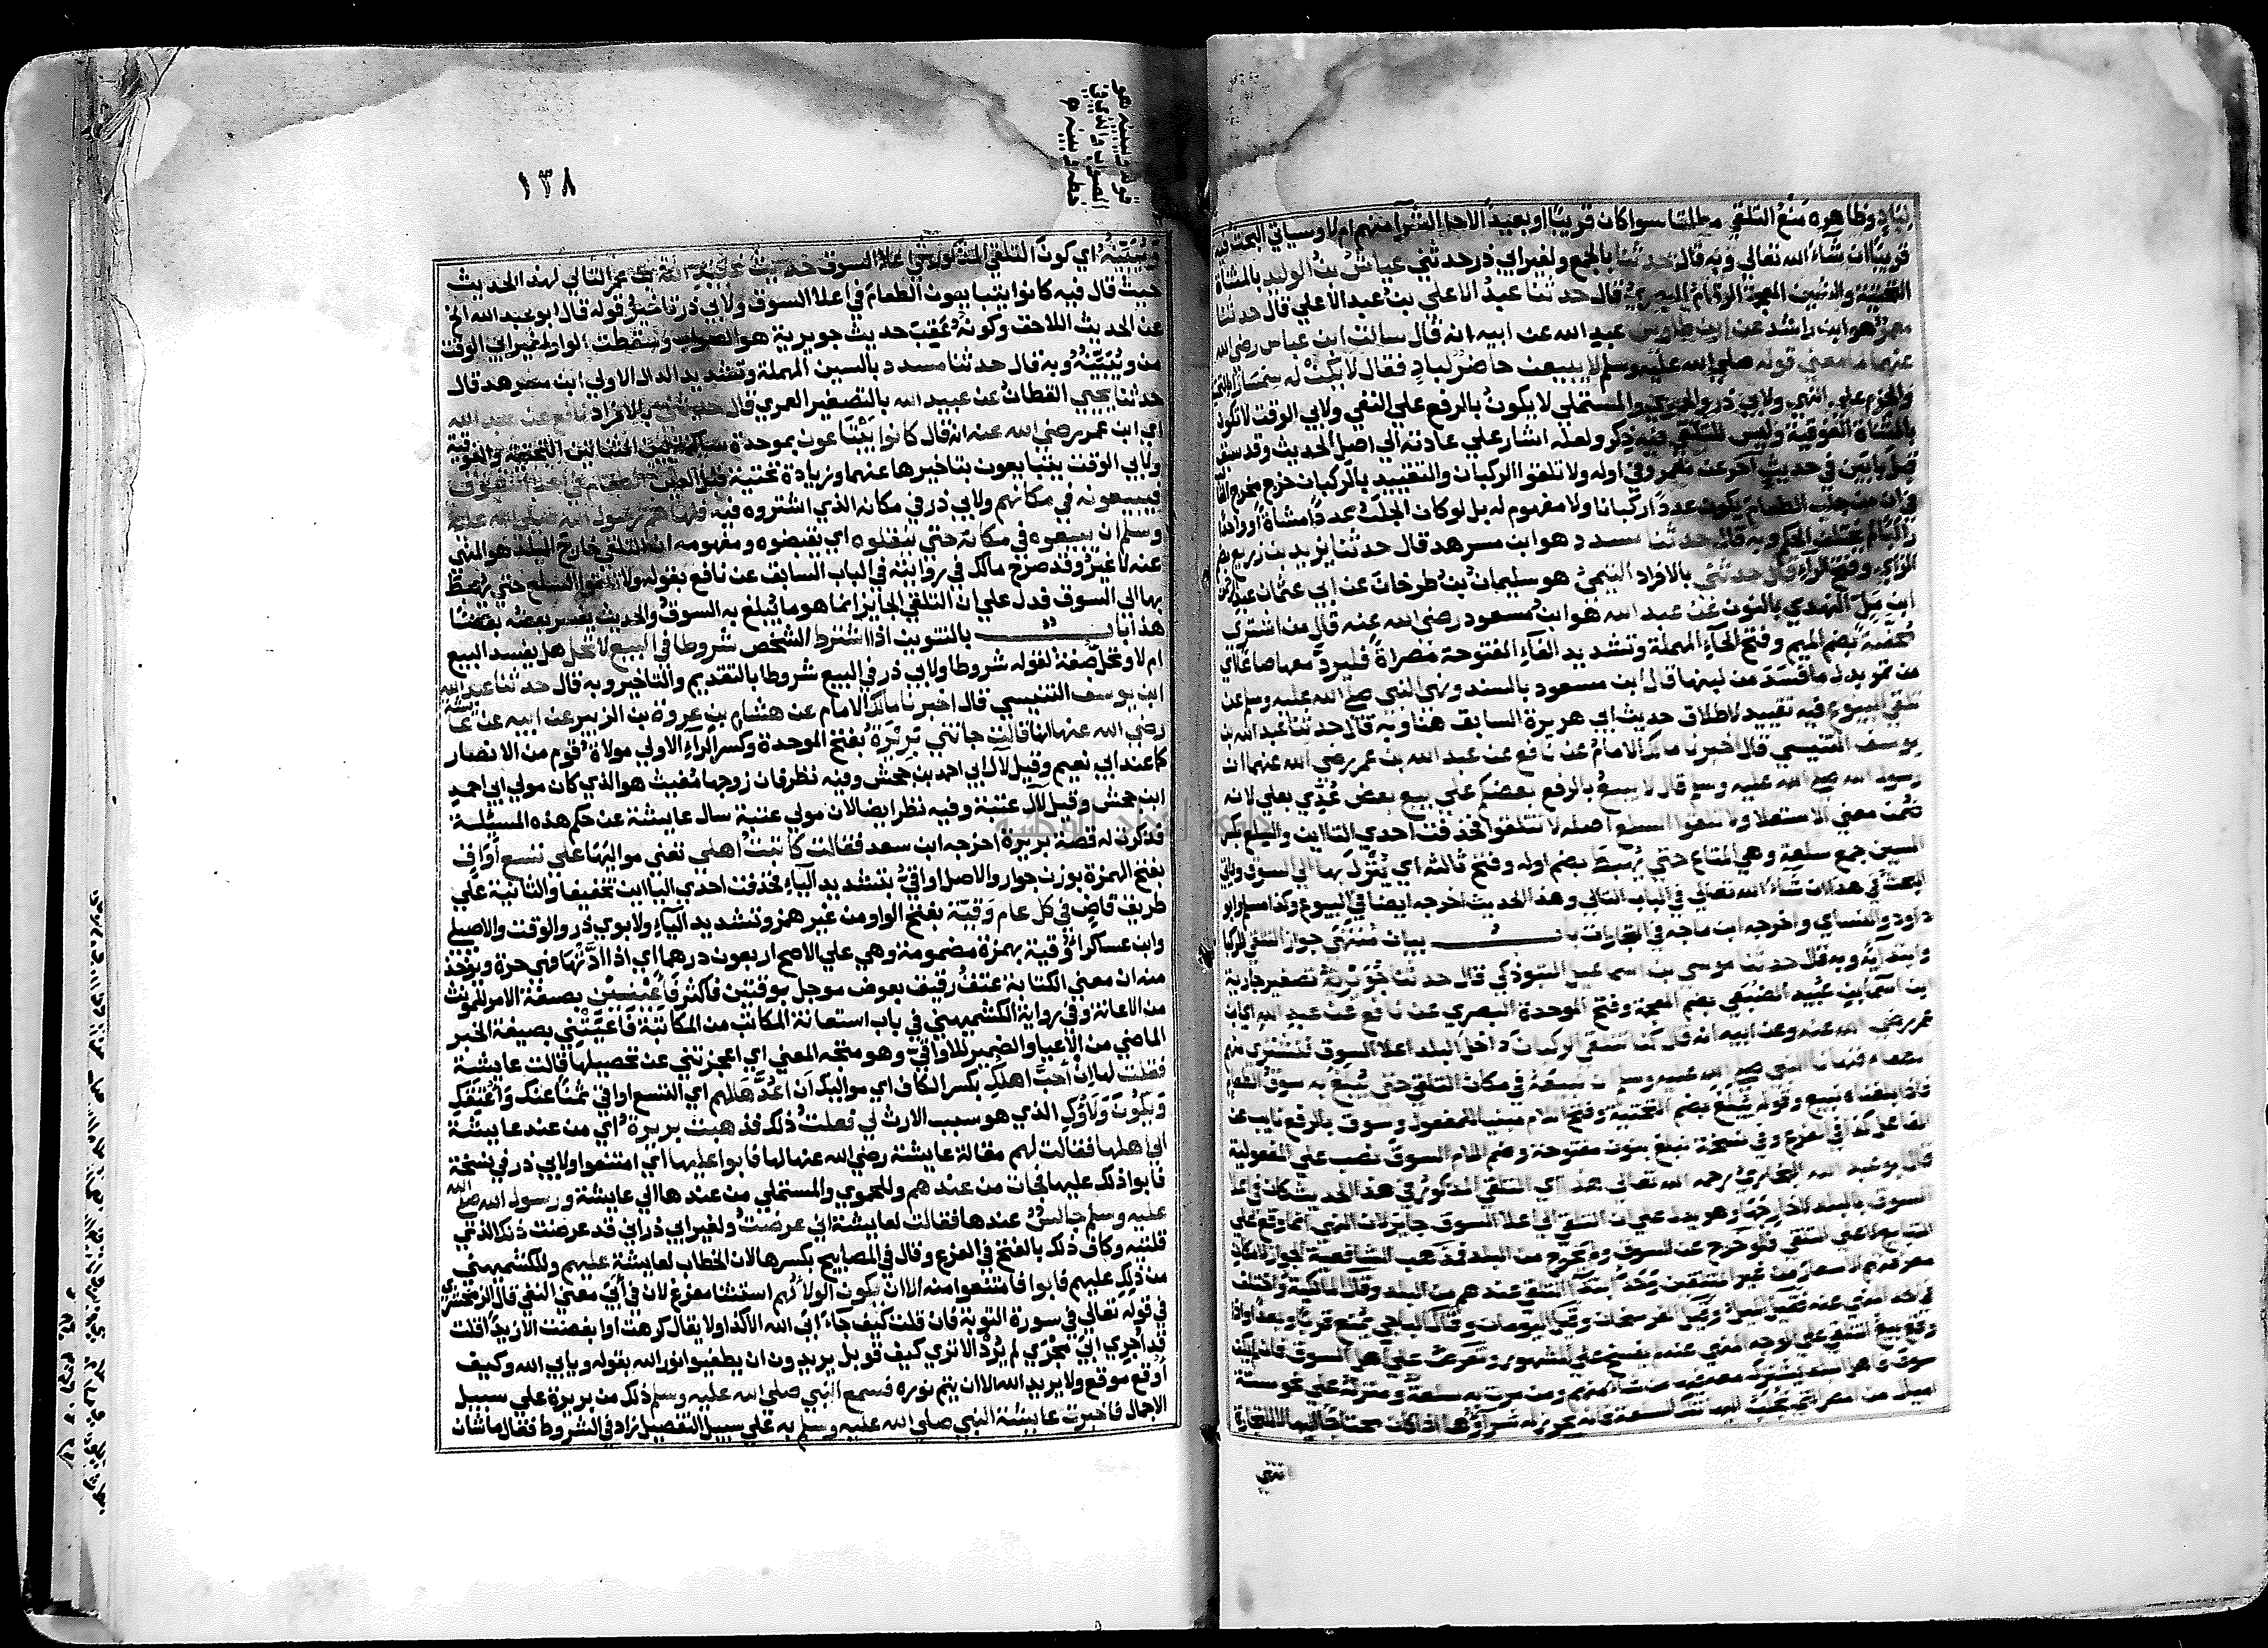 لباد وظاهره منع التلقي مطلقا سوا كان قريبا او بعيدا لاجل الشرا منهم ام لا وسياتي البحث فيه
قريبا ان شاء الله تعالي وبه قال حدثنا بالجمع ولغير ابي ذر حدثني عياش بن الوليد بالمثناة
التحتية والشين المعجمة الرقام البصري قال حدثنا عبد الاعلي بن عبد الاعلي قال حدثنا
معمر هو ابن راشد عن ابن طاوس عبد الله عن ابيه انه قال سالت ابن عباس رضي الله
عنهما ما معني قوله صلي الله عليه وسلم لا يبيعن حاضر لباد فقال لا يكن له سمسارا بالتي
والجزم علي النهي ولابي ذر والحموي والمستملي لا يكون بالرفع علي النفي ولابي الوقت لا تكون
بالمثناة الفوقية وليس للتلقي فيه ذكر ولعله اشار علي عادته الي اصل الحديث وقد سبق
قبل بابين في حديث اخر عن معمر وفي اوله ولا تلقوا الركبان والتقييد بالركبان خرج مخرج الغا
في ان من جلب الطعام يكون عددا ركبانا ولا مفهوم له بل لو كان الجلب عددا مشاة او واحدا
راكبا لم يختلف الحكم وبه قال حدثنا مسدد هو ابن مسرهد قال حدثنا يزيد بن زريع بضم
الزاي وفتح الراء قال حدثني بالافراد التيمي هو سليمان بن طرخان عن ابي عثمان عبد الرحمن
ابن مل النهدي بالنون عن عبد الله هو ابن مسعود رضي الله عنه قال من اشتري
محفلة بضم الميم وفتح الحاء المهملة وتشديد الفاء المفتوحة مصراة فليرد معها صاعا اي
من تمر بدل ما فسد من لبنها قال ابن مسعود بالسند ونهي النبي صلي الله عليه وسلم عن
تلقي البيوع فيه تقييد لاطلاق حديث ابي هريرة السابق هنا وبه قال حدثنا عبد الله بن
يوسف التنيسي قال اخبرنا مالك الامام عن نافع عن عبد الله بن عمر رضي الله عنهما ان
رسول الله صلي الله عليه وسلم قال لا يبيع بالرفع بعضكم علي بيع بعض عدي بعلي لانه
ضمن معني الاستعلا ولا تلقوا السلع اصله لا تتلقوا فحذفت احدي التاين والسلع بكسر
السين جمع سلعة وهي المتاع حتي يهبط بضم اوله وفتح ثالثه اي ينزل بها الي السوق وياتي
البحث في هذا ان شاء الله تعالي في الباب التالي وهذا الحديث اخرجه ايضا في البيوع وكذا مسلم وابو
داود والنساي واخرجه ابن ماجه في التجارات باب بيان منتهي جواز التلقي للركبا
وابتدايه وبه قال حدثنا موسي بن اسمعيل التبوذكي قال حدثنا جويرية تصغير جارية
ابن اسما بن عبيد الضبعي بضم المعجمة وفتح الموحدة البصري عن نافع عن عبد الله اي ابن
عمر رضي الله عنه وعن ابيه انه قال كنا نتلقي الركبان داخل البلد اعلا السوق فنشتري منهم
الطعام فنهانا النبي صلي الله عليه وسلم ان نبيعه في مكان التلقي حتي يبلغ به سوق الطعام
فاذا بلغناه نبيع وقوله يبلغ بضم التحتية وفتح اللام مبنيا للمفعول وسوق بالرفع نايب عن
الفاعل كذا في الفرع وفي نسخة نبلغ بنون مفتوحة وضم اللام السوق نصب علي المفعولية
قال ابو عبد الله البخاري رحمه الله تعالي هذا اي التلقي المذكور في هذا الحديث كان في اعلا
السوق بالبلد لا خارجها وهو يدل علي ان التلقي الي اعلا السوق جايز لان النهي انما وقع علي
التبايع لا علي التلقي فلو خرج عن السوق ولم يخرج من البلد فمذهب الشافعية الجواز لامكان
معرفتهم الاسعار من غير المتلقين وحد ابتدا التلقي عندهم من البلد وقال المالكية واختلف
في الحد المنهي عنه فقيل الميل وقيل الفرسخان وقيل اليومان وقال الباجي يمنع قربا وبعدا واذا
وقع بيع التلقي علي الوجه المنهي عنه لم يفسخ علي المشهور وتعرض علي اهل السوق فان لم يكن
سوق فاهل البلد يشترك معه فيه من شاء منهم ومن مرت به سلعة ومنزله علي نحو ستة
اميال من المصر التي تجلب اليها تلك السلعة فانه يجوز له شراؤها اذا كان محتاجا اليها لا للتجارة
انتهي
قوله ويبينه هو
الصواب والذي في
خطه وبينه م
١٣٨
ويبينه اي كون التلقي المذكور في اعلا السوق حديث عبيد الله بن عمر التالي لهذا الحديث
حيث قال فيه كانوا يتبايعون الطعام في اعلا السوق ولابي ذر تاخير قوله قال ابو عبد الله الخ
عن الحديث اللاحق وكونه عقب حديث جويرية هو الصواب وسقطت الواو لغير ابي الوقت
من ويبينه وبه قال حدثنا مسدد بالسين المهملة وتشديد الدال الاولي ابن مسرهد قال
حدثنا يحيي القطان عن عبيد الله بالتصغير العمري قال حدثني بالافراد نافع عن عبد الله
اي ابن عمر رضي الله عنه انه قال كانوا يبتاعون بموحدة ساكنة بين المثناتين التحتية والفوقية
ولابي الوقت يتبايعون بتاخيرها عنهما وزيادة تحتية قبل العين الطعام في اعلا السوق
فيبيعونه في مكانهم ولابي ذر في مكانه الذي اشتروه فيه فنهاهم رسول الله صلي الله عليه
وسلم ان يبيعوه في مكانه حتي ينقلوه اي يقبضوه ومفهومه ان التلقي خارج البلد هو المنهي
عنه لا غير وقد صرح مالك في روايته في الباب السابق عن نافع بقوله ولا تلقوا السلع حتي يهبط
بها الي السوق فدل علي ان التلقي الجايز انما هو ما يبلغ به السوق والحديث يفسر بعضه بعضا
هذا باب بالتنوين اذا اشترط الشخص شروطا في البيع لا تحل هل يفسد البيع
ام لا وتحل صفة لقوله شروطا ولابي ذر في البيع شروطا بالتقديم والتاخير وبه قال حدثنا عبد الله
ابن يوسف التنيسي قال اخبرنا مالك الامام عن هشام بن عروة بن الزبير عن ابيه عن عايشة
رضي الله عنها انها قالت جاتني بريرة بفتح الموحدة وكسر الراء الاولي مولاة قوم من الانصار
كما عند ابي نعيم وقيل لآل ابي احمد بن جحش وفيه نظر فان زوجها مغيث هو الذي كان مولي ابي احمد
ابن جحش وقيل لآل عتبة وفيه نظر ايضا لان مولي عتبة سال عايشة عن حكم هذه المسئلة
فذكرت له قصة بريرة اخرجه ابن سعد فقالت كاتبت اهلي تعني مواليها علي تسع اواق
بفتح الهمزة بوزن جوار والاصل اواقي بتشديد الياء فحذفت احدي الياين تخفيفا والثانية علي
طريق قاض في كل عام وقية بفتح الواو من غير همز وتشديد الياء ولابوي ذر والوقت والاصيلي
وابن عساكر اوقية بهمزة مضمومة وهي علي الاصح اربعون درهما اي اذا ادتها فهي حرة ويؤخذ
منه ان معني الكتابة عتق رقيق بعوض موجل بوقتين فاكثر فاعينيني بصيغة الامر للمونث
من الاعانة وفي رواية الكشميهني في باب استعانة المكاتب من المكاتبة فاعيتني بصيغة الخبر
الماضي من الاعيا والضمير للاواقي وهو متجه المعني اي اعجزتني عن تحصيلها قالت عايشة
فقلت لها ان احب اهلك بكسر الكاف اي مواليك ان اعدها لهم اي التسع اواقي ثمنا عنك واعتقك
ويكون ولاؤك الذي هو سبب الارث لي فعلت ذلك فذهبت بريرة اي من عند عايشة
الي اهلها فقالت لهم مقالة عايشة رضي الله عنها لها فابوا عليها اي امتنعوا ولابي ذر في نسخة
فابوا ذلك عليها فجات من عندهم وللحموي والمستملي من عندها الي عايشة ورسول الله صلي الله
عليه وسلم جالس عندها فقالت لعايشة اني عرضت ولغير ابي ذر اني قد عرضت ذلك الذي
قلتيه وكاف ذلك بالفتح في الفرع وقال في المصابيح بكسرها لان الخطاب لعايشة عليهم وللكشميهني
من ذلك عليهم فابوا فامتنعوا منه الا ان يكون الولا لهم استثنا مفرغ لان في ابي معني النفي قال الزمخشري
في قوله تعالي في سورة التوبة فان قلت كيف جاء ابي الله الا كذا ولا يقال كرهت او ابغضت الا زيدا قلت
قد اجري ابي مجري لم يرد الا تري كيف قوبل يريدون ان يطفيوا نور الله بقوله ويابي الله وكيف
اوقع موقع ولا يريد الله الا ان يتم نوره فسمع النبي صلي الله عليه وسلم ذلك من بريرة علي سبيل
الاجمال فاخبرت عايشة النبي صلي الله عليه وسلم به علي سبيل التفصيل زاد في الشروط فقال ما شان